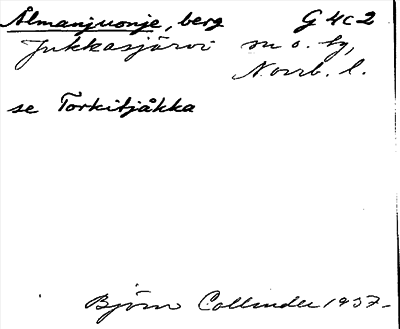 Almanjuonje, berg G 4c2
Jukkasjärvi sn o. tg,
Norrb. l.
se Torkitjåkka
Björn Collinder 1937-